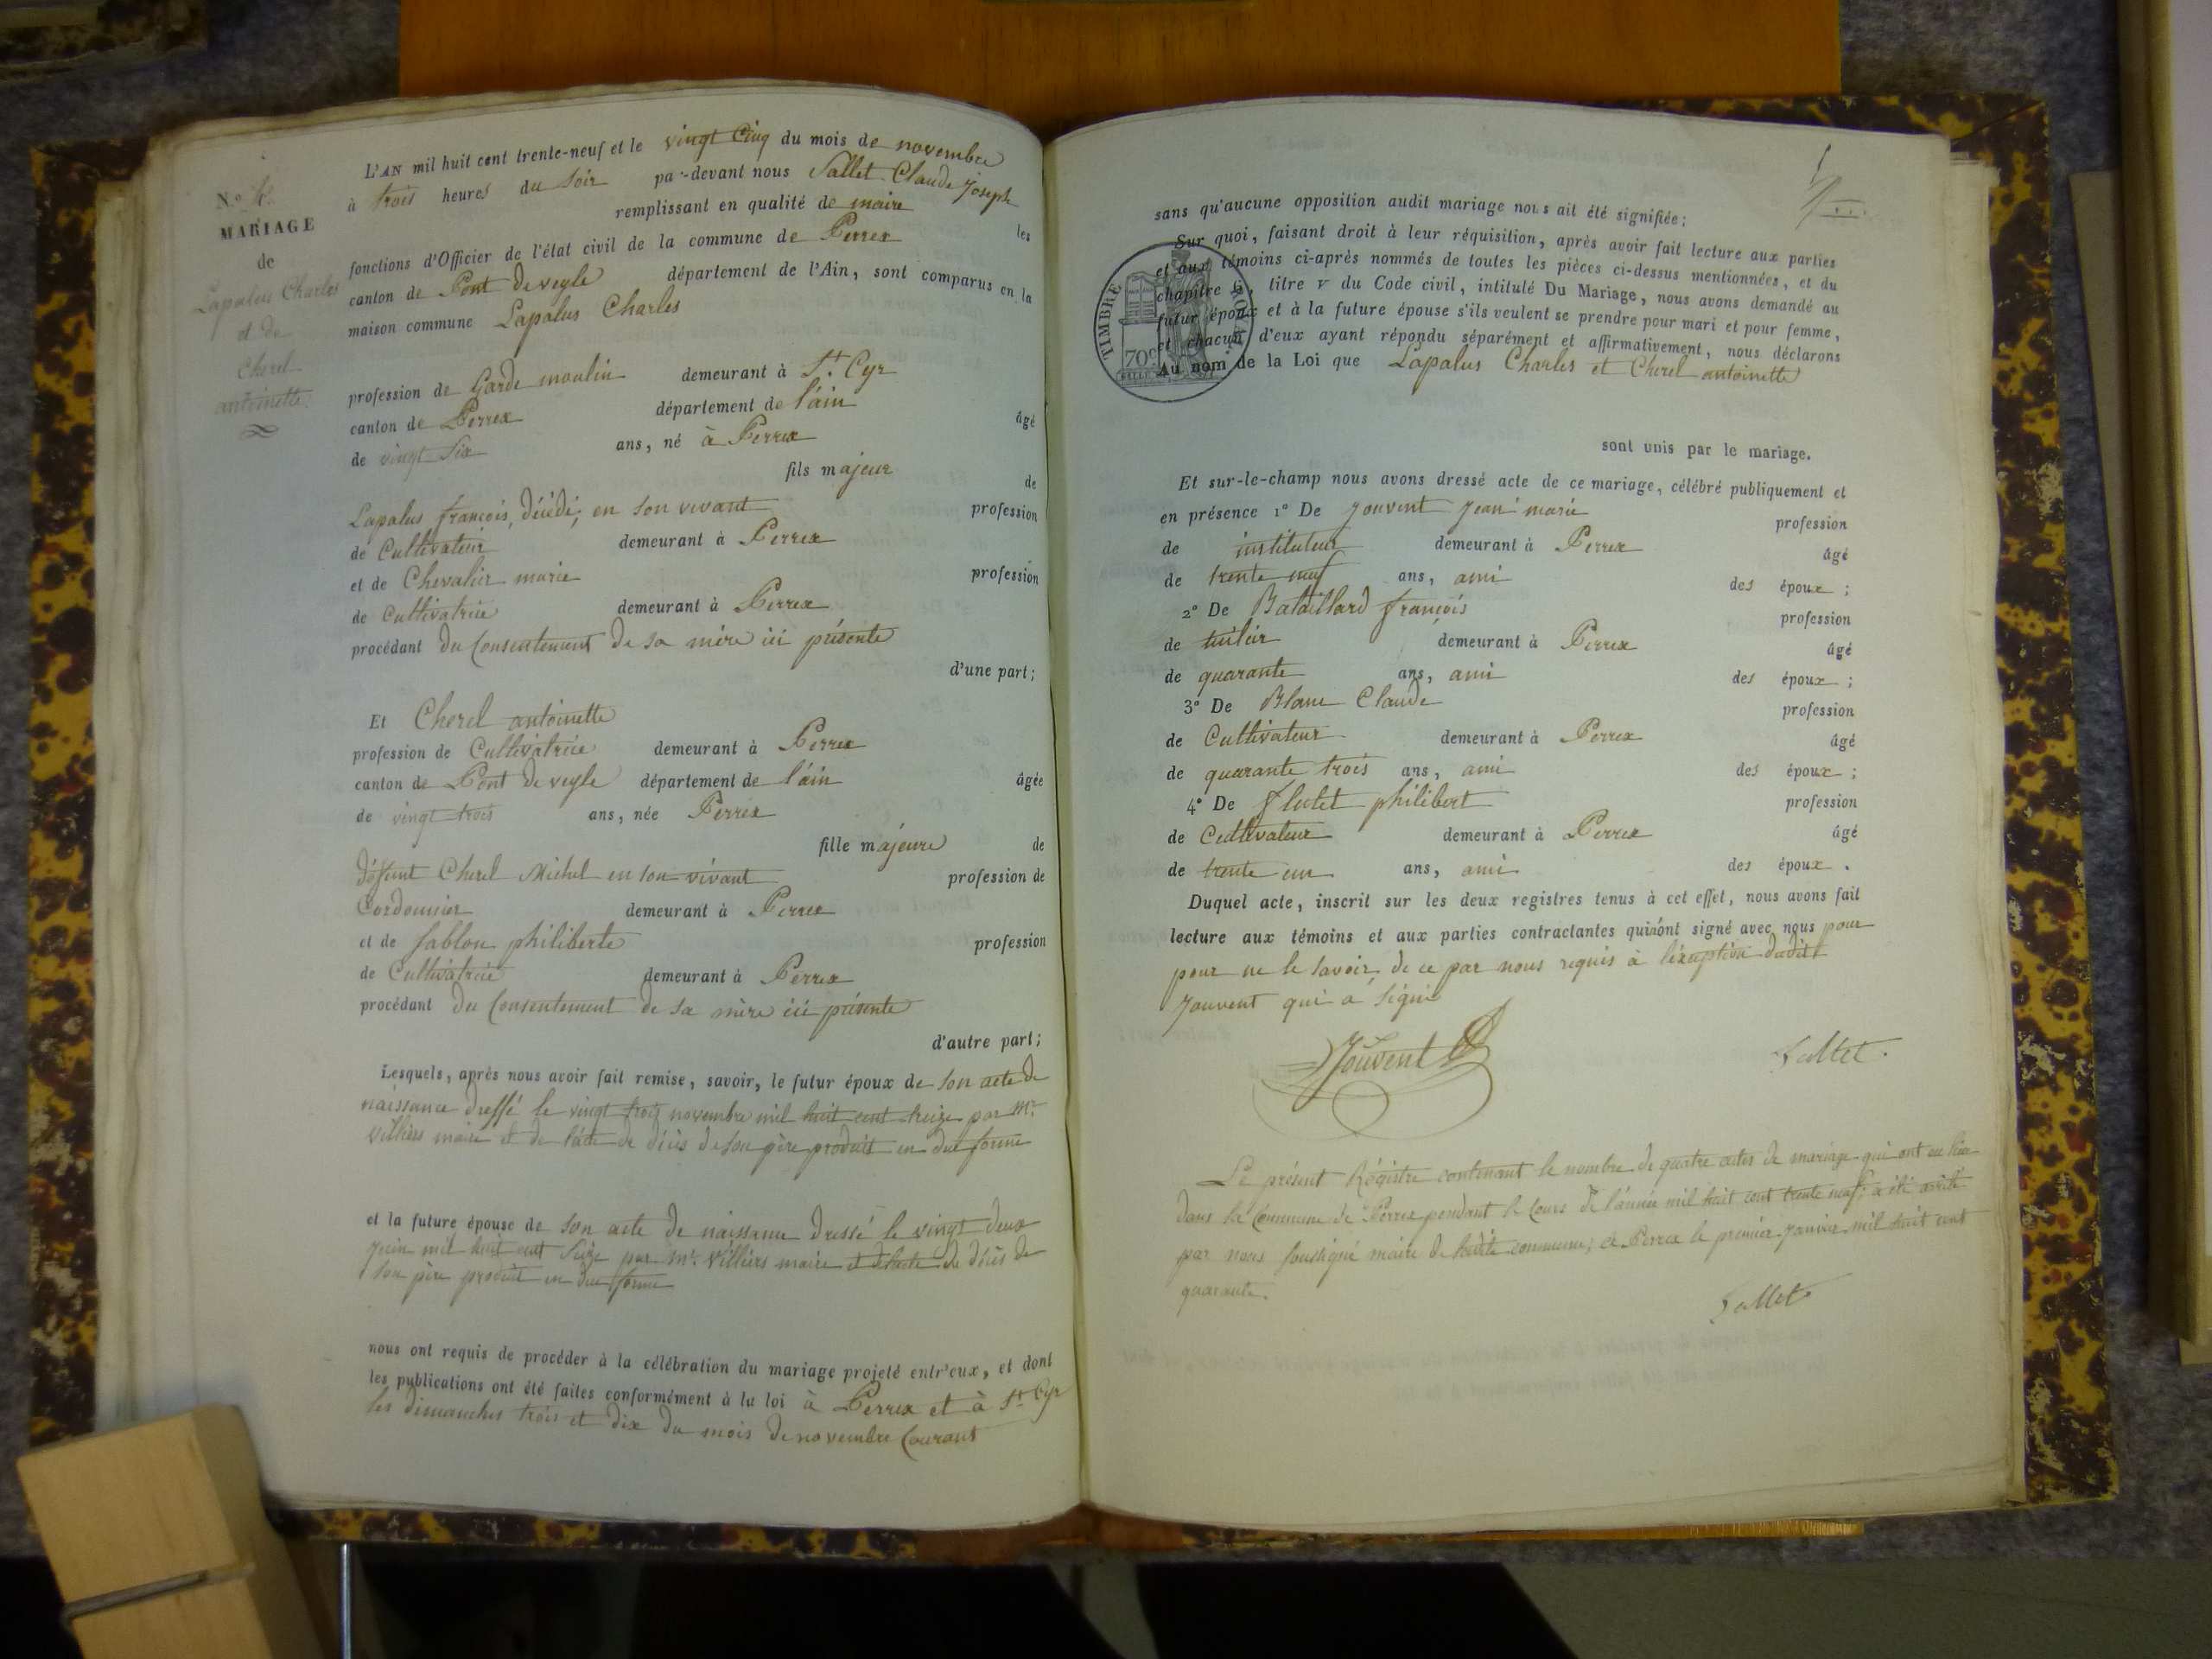 N.º 4.
MARIAGE
de
Lapalus Charles
et de
Cherel
antoinette.
L'AN mil huit cent trente-neuf et le vingt Cinq du mois de novembre
à trois heures du soir par-devant nous Sallet Claude Joseph
remplissant en qualité de maire les
fonctions d'Officier de l'état civil de la commune de Perrex
canton de Pont de veyle département de l'Ain, sont comparus en la
maison commune Lapalus Charles
profession de Garde moulin demeurant à St. Cyr
canton de Perrex département de l'ain âgé
de vingt Six ans, né à Perrex
fils majeur de
Lapalus françois, décédé; en son vivant profession
de Cultivateur demeurant à Perrex
et de Chevalier marie profession
de Cultivatrice demeurant à Perrex
procédant du Consentement de sa mère ici présente
d'une part;
Et Cherel antoinette
profession de Cultivatrice demeurant à Perrex
canton de Pont de veyle département de l'ain âgée
de vingt trois ans, née Perrex
fille majeure de
défunt Cherel Michel en son vivant profession de
Cordonnier demeurant à Perrex
et de Sablon philiberte profession
de Cultivatrice demeurant à Perrex
procédant du Consentement de sa mère ici présente
d'autre part;
Lesquels, après nous avoir fait remise, savoir, le futur époux de son acte de
naissance dressé le vingt trois novembre mil huit cent treize par Mr.
Villiers maire et de l'acte de décès de son père produits en due forme
et la future épouse de son acte de naissance dressé le vingt deux
juin mil huit cent Seize par mr. Villiers maire et de l'acte de décès de
son père produit en due forme
nous ont requis de procéder à la célébration du mariage projeté entr'eux, et dont
les publications ont été faites conformément à la loi à Perrex et à St. Cyr
les dimanches trois et dix du mois de novembre Courant
sans qu'aucune opposition audit mariage nous ait été signifiée;
Sur quoi, faisant droit à leur réquisition, après avoir fait lecture aux parties
et aux témoins ci-après nommés de toutes les pièces ci-dessus mentionnées, et du
chapitre 6, titre v du Code civil, intitulé Du Mariage, nous avons demandé au
futur époux et à la future épouse s'ils veulent se prendre pour mari et pour femme,
et chacun d'eux ayant répondu séparément et affirmativement, nous déclarons
Au nom de la Loi que Lapalus Charles et Cherel antoinette
TIMBRE ROYAL
70c
sont unis par le mariage.
Et sur-le-champ nous avons dressé acte de ce mariage, célébré publiquement et
en présence 1º De Jouvent Jean marie profession
de instituteur demeurant à Perrex âgé
de trente neuf ans, ami des époux ;
2º De Bataillard françois profession
de tuilier demeurant à Perrex âgé
de quarante ans, ami des époux ;
3º De Blanc Claude profession
de Cultivateur demeurant à Perrex âgé
de quarante trois ans, ami des époux ;
4º De flutet philibert profession
de Cultivateur demeurant à Perrex âgé
de trente un ans, ami des époux .
Duquel acte, inscrit sur les deux registres tenus à cet effet, nous avons fait
lecture aux témoins et aux parties contractantes qui n'ont signé avec nous pour
pour ne le savoir, de ce par nous requis à l'exception dudit
Jouvent qui a signé
Jouvent
Sallet.
Le présent Régistre contenant le nombre de quatre actes de mariage qui ont eu lieu
dans la Commune de Perrex pendant le Cours de l'année mil huit cent trente neuf; a été arrêté
par nous soussigné maire de ladite commune; à Perrex le premier janvier mil huit cent
quarante.
Sallet